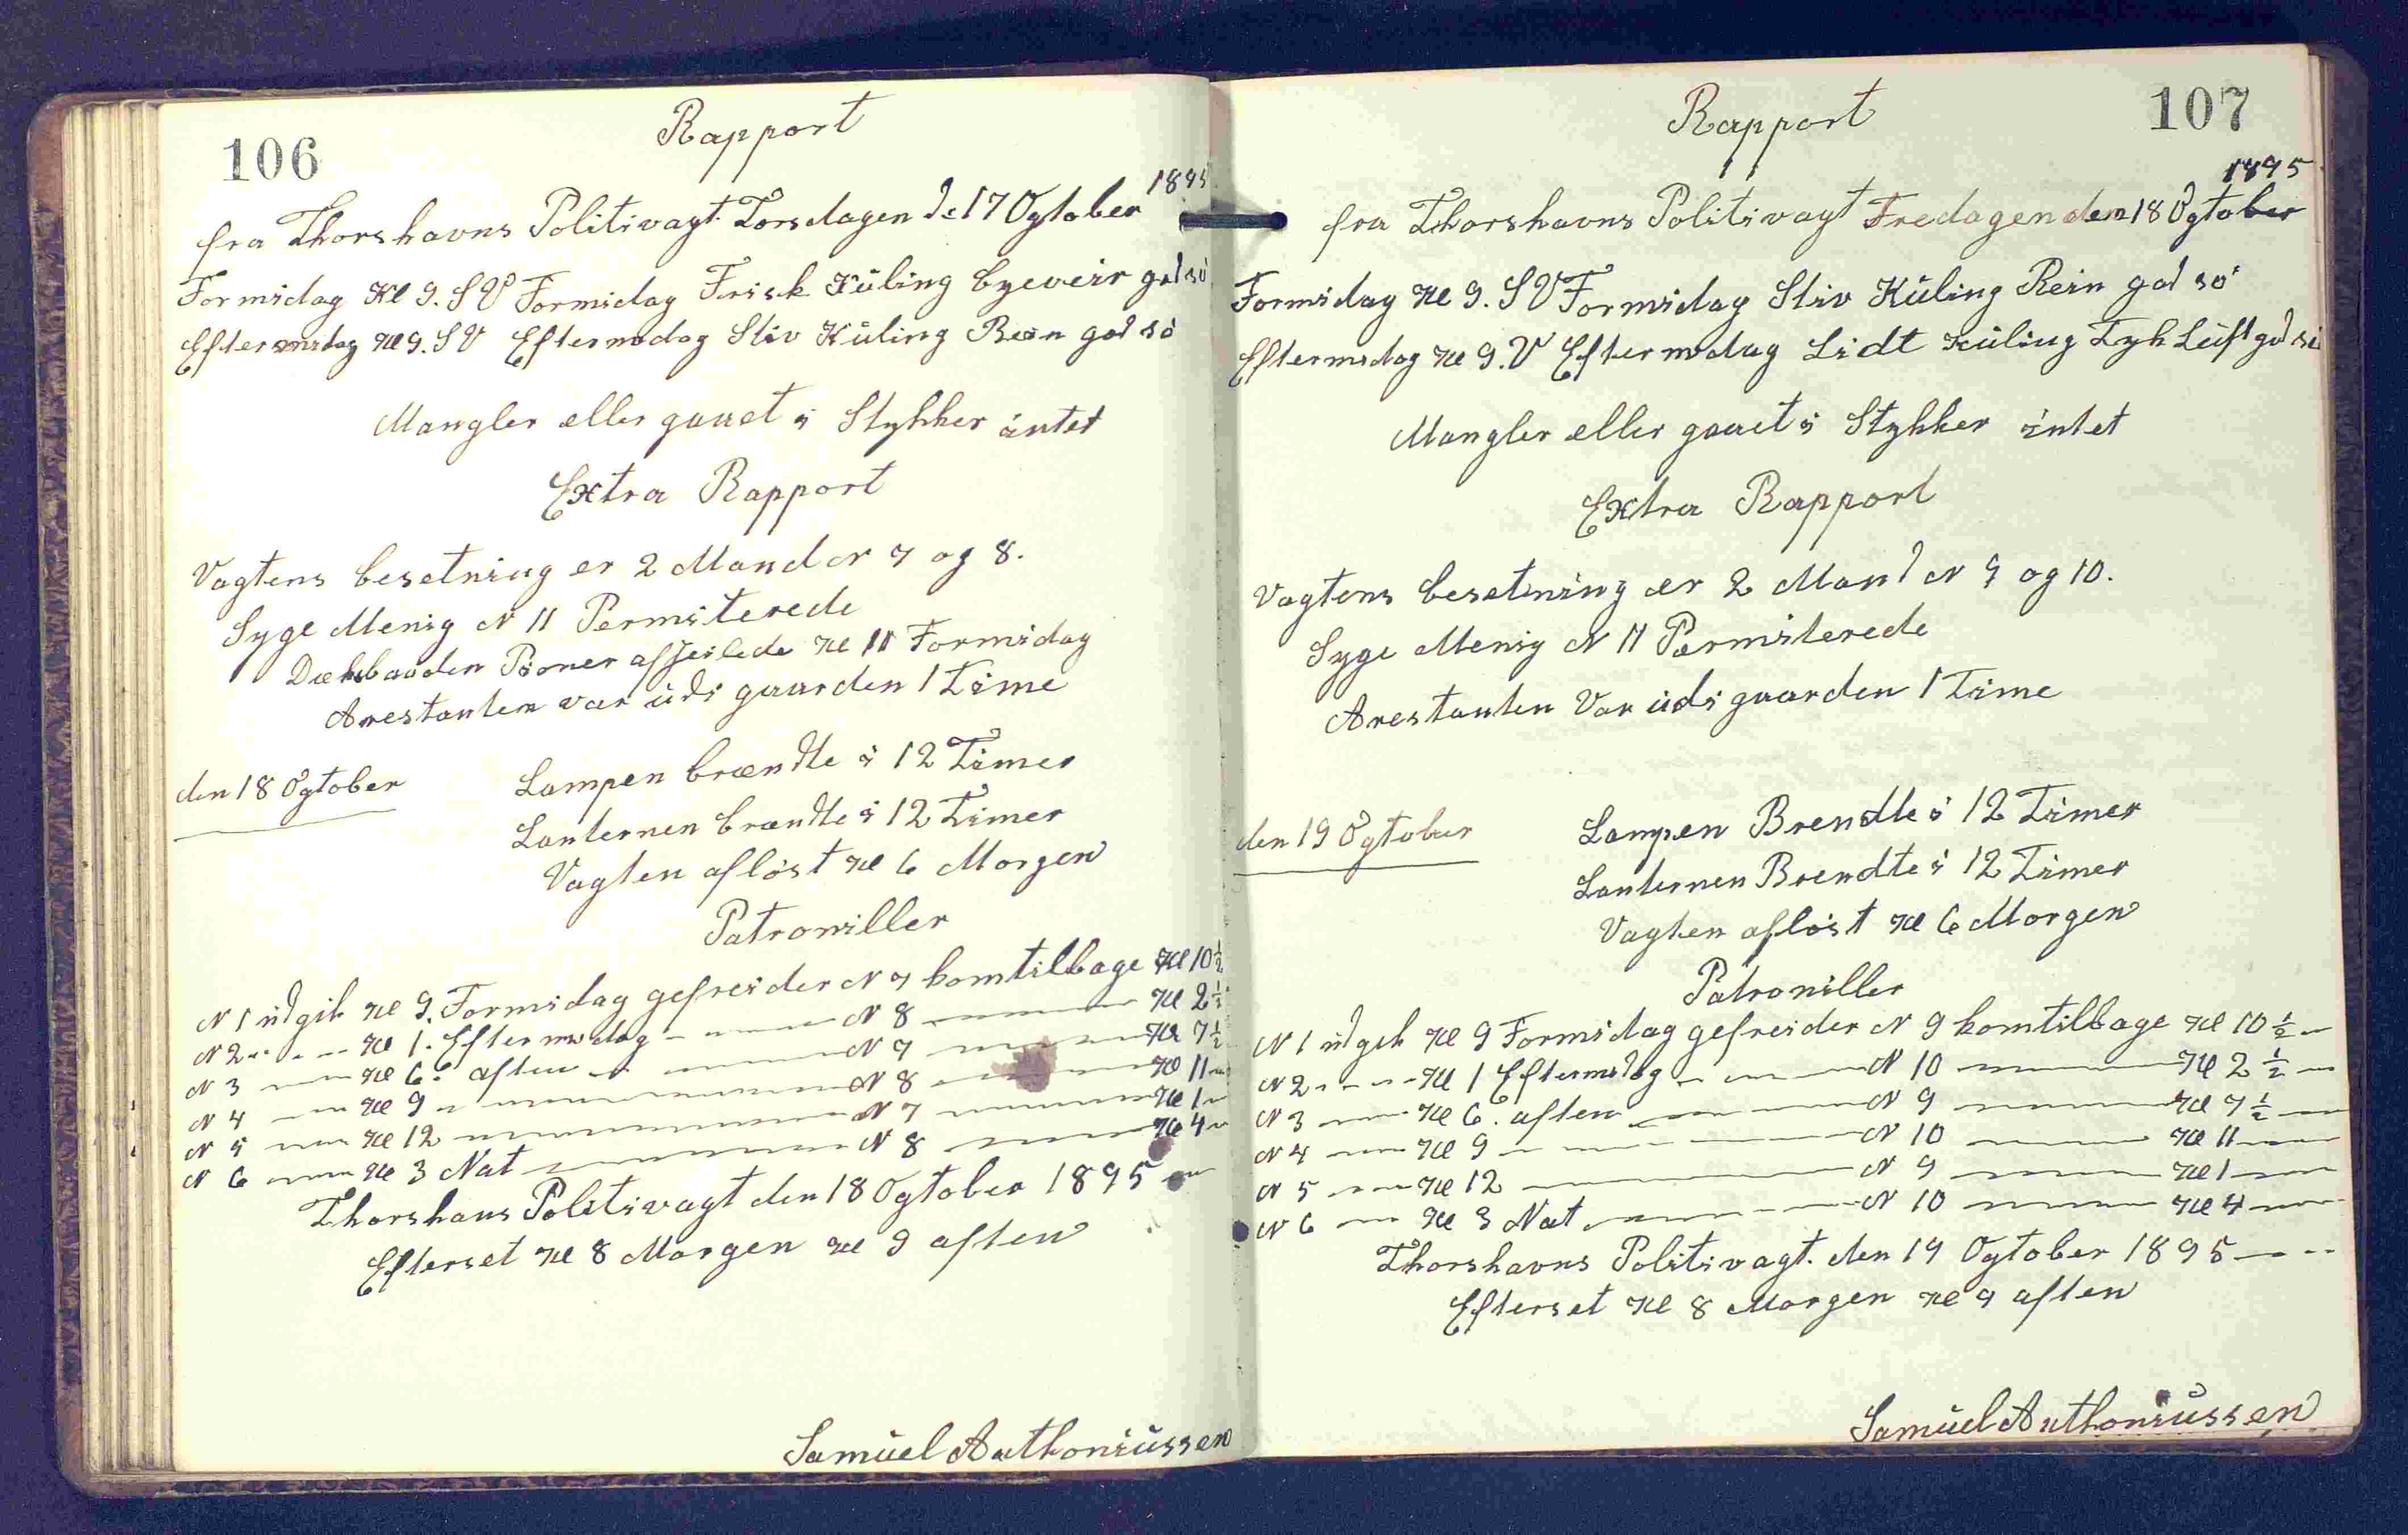 106
Rapport
fra Thorshavns Politivagt Torsdagen d. 17 Ogtober 1895
Formidag Kl 9. SV Formidag Frisk Küling byeveir god sö
Eftermidag Kl 9. SV Eftermidag Stiv Küling Rein god sö
Mangler eller gaaet i Stykker intet
Extra Rapport
Vagtens besetning er 2 Mand N 7 og 8.
Syge Menig N 11 Permiterede
Dæksbaaden Pioner afseilede Kl 11 Formidag
Arestanten var udi gaarden 1 Time
den 18 Ogtober
Lampen brændte i 12 Timer
Lanternen brændte i 12 Timer
Vagten aflöst Kl 6 Morgen
Patroniller
N 1 udgik Kl 9. Formidag gefreider N 7 kom tilbage Kl 10 ½
N 2 " — Kl 1. Eftermidag — — N 8 — Kl 2 ½
N 3 — Kl 6. aften — — N 7 — Kl 7 ½
N 4 — Kl 9 — — N 8 — Kl 11 —
N 5 — Kl 12 — — N 7 — Kl 1 —
N 6 — Kl 3 Nat — — N 8 — Kl 4 —
Thorshans Politivagt den 18 Ogtober 1895 —
Efterset Kl 8 Morgen Kl 9 aften
Samuel Anthoniussen
107
Rapport
fra Thorshavns Politivagt Fredagen den 18 Ogtober 1895
Formidag Kl 9. SV Formidag Stiv Küling Rein god sö
Eftermidag Kl 9. V Eftermidag Lidt Küling Tyk Luft god sö
Mangler eller gaaet i Stykker intet
Extra Rapport
Vagtens besetning er 2 Mand N 9 og 10.
Syge Menig N 11 Permiterede
Arestanten Var udi gaarden 1 Time
den 19 Ogtober
Lampen Brendte i 12 Timer
Lanternen Brendte i 12 Timer
Vagten aflöst Kl 6 Morgen
Patroniller
N 1 udgik Kl 9 Formidag gefreider N 9 kom tilbage Kl 10 ½ —
N 2 " — Kl 1 Eftermidag — — N 10 — Kl 2 ½ —
N 3 — Kl 6. aften — — N 9 — Kl 7 ½ —
N 4 — Kl 9 — — N 10 — Kl 11 —
N 5 — Kl 12 — — N 9 — Kl 1 —
N 6 — Kl 3 Nat — — N 10 — Kl 4 —
Thorshavns Politivagt. den 19 Ogtober 1895 —
Efterset Kl 8 Morgen Kl 9 aften
Samuel Anthoniussen